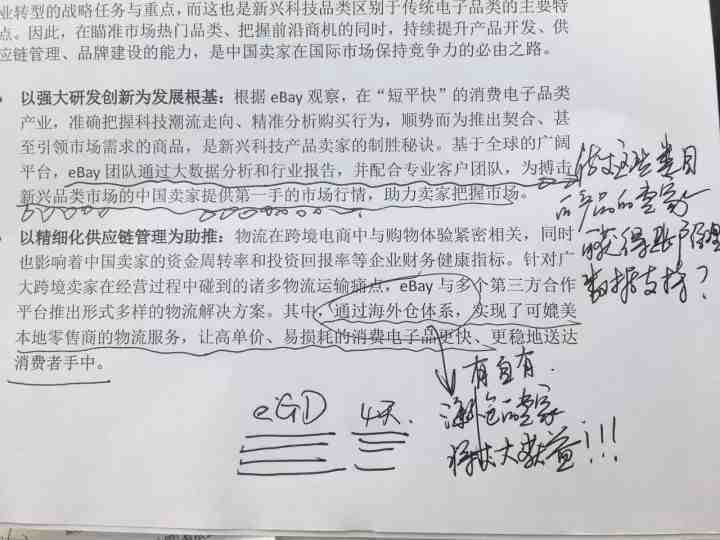 业转型的战略任务与重点，而这也是新兴科技品类区别于传统电子品类的主要特
点。因此，在瞄准市场热门品类、把握前沿商机的同时，持续提升产品开发、供
应链管理、品牌建设的能力，是中国卖家在国际市场保持竞争力的必由之路。
以强大研发创新为发展根基：根据 eBay 观察，在“短平快”的消费电子品类
产业，准确把握科技潮流走向、精准分析购买行为，顺势而为推出契合、甚
至引领市场需求的商品，是新兴科技产品卖家的制胜秘诀。基于全球的广阔
平台，eBay 团队通过大数据分析和行业报告，并配合专业客户团队，为搏击
新兴品类市场的中国卖家提供第一手的市场行情，助力卖家把握市场。
做过这些类目
的产品的卖家
获得账户经理
数据支持？
以精细化供应链管理为助推：物流在跨境电商中与购物体验紧密相关，同时
也影响着中国卖家的资金周转率和投资回报率等企业财务健康指标。针对广
大跨境卖家在经营过程中碰到的诸多物流运输痛点，eBay 与多个第三方合作
平台推出形式多样的物流解决方案。其中，通过海外仓体系，实现了可媲美
本地零售商的物流服务，让高单价、易损耗的消费电子品更快、更稳地送达
消费者手中。
eGD 4天.
有自有.
海外仓的卖家
将大大获益!!!